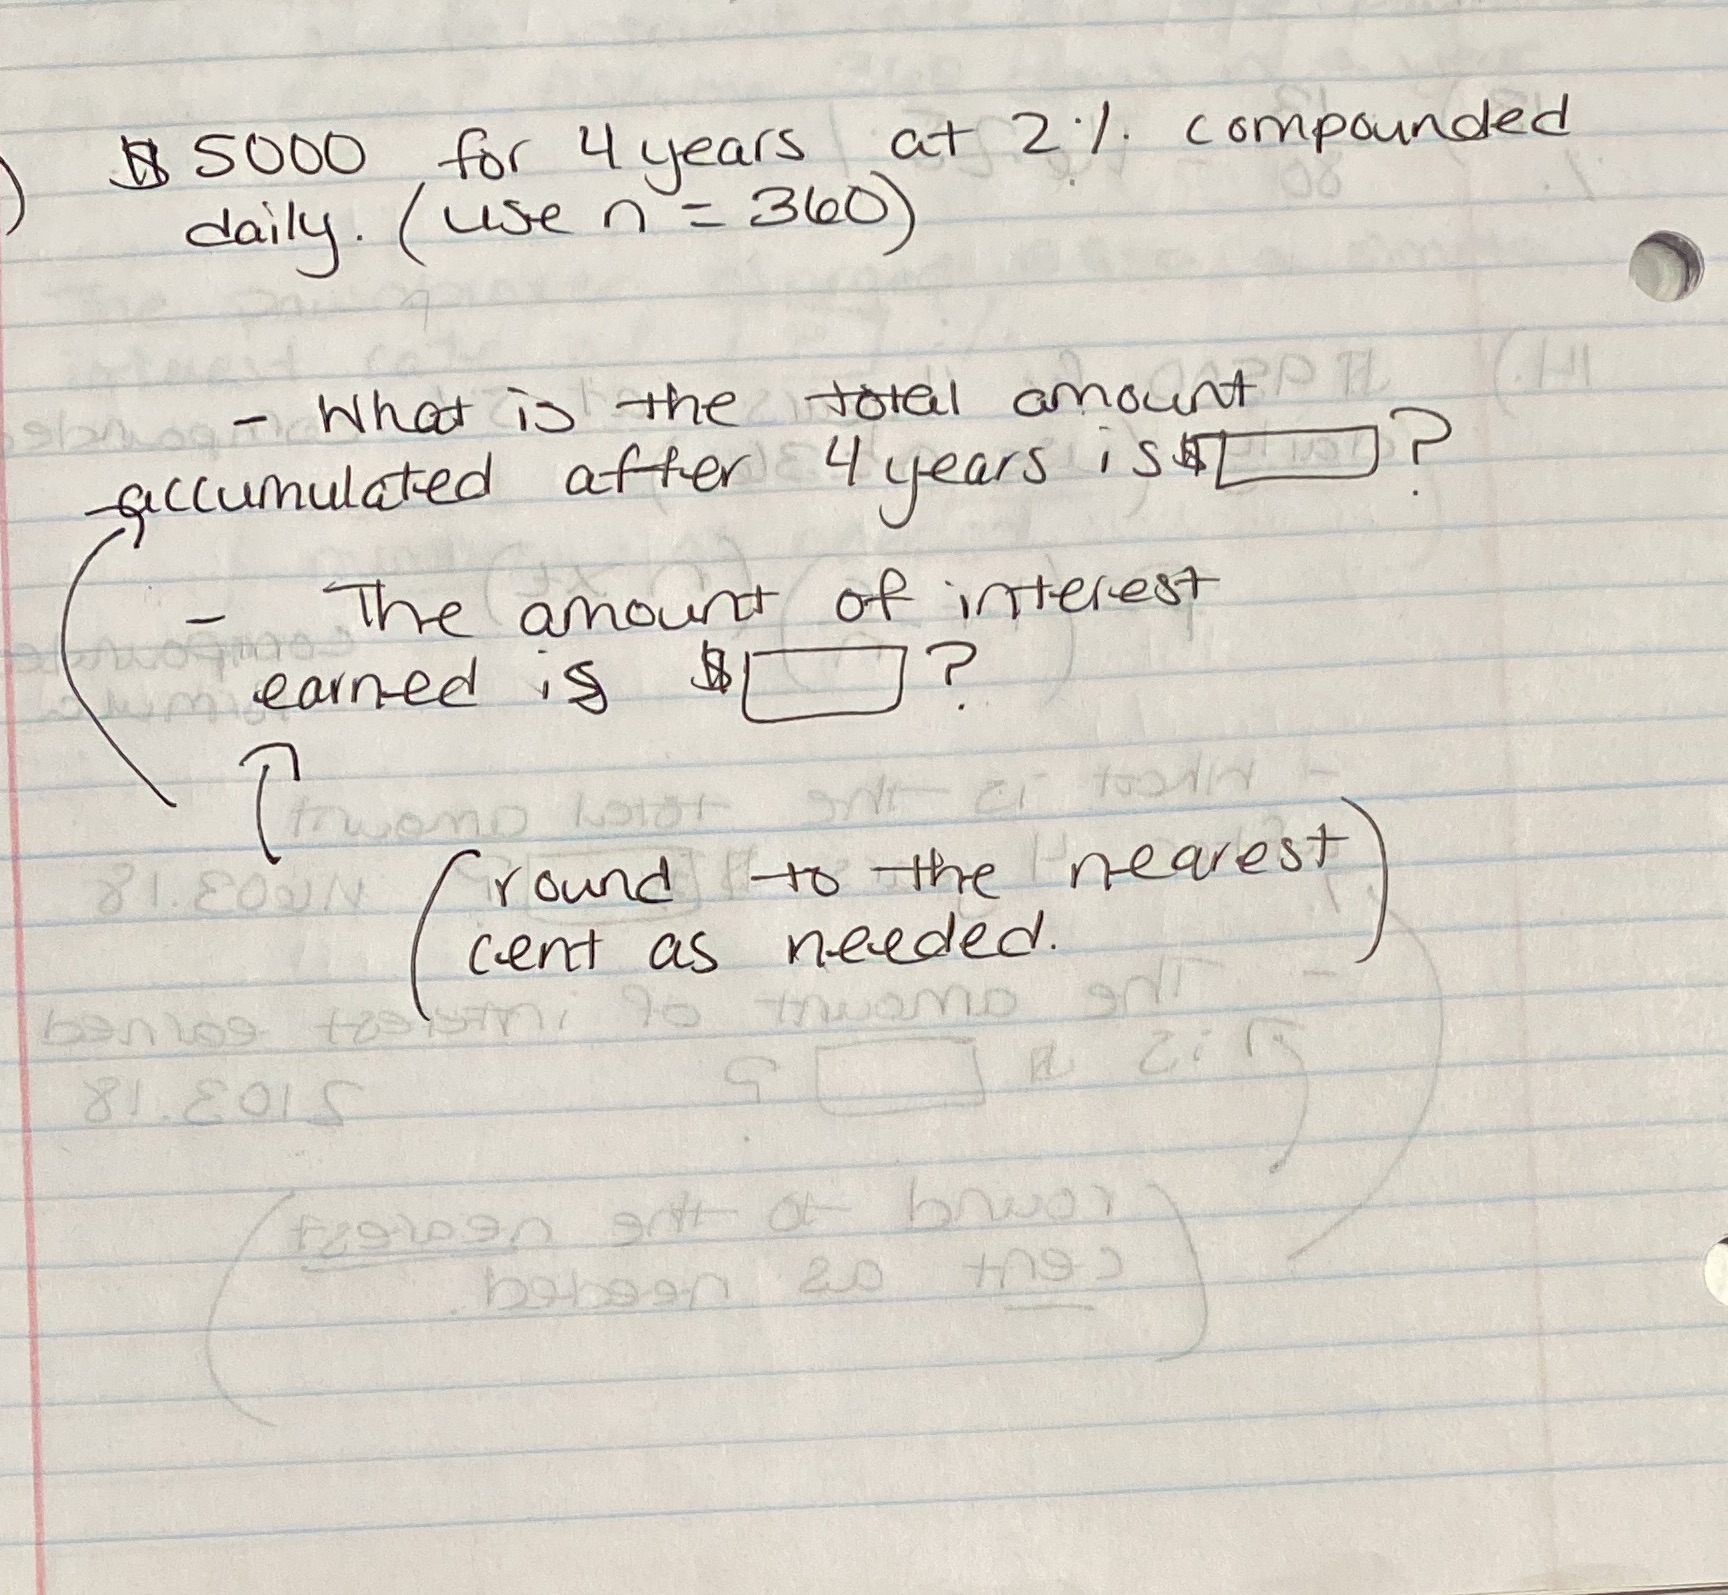 ) $5000 for 4 years at 2% compounded
daily. (use n = 360)
- What is the total amount
accumulated after 4 years is $ ?
- The amount of interest
earned is $ ?
(round to the nearest
cent as needed.)